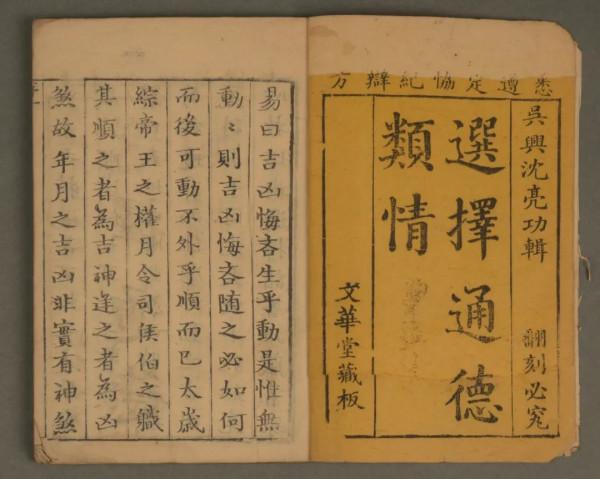 悉遵定恊紀辯方
吳興沈亮功輯 翻刻必究
選擇通德
類情
文華堂藏板
易曰吉凶悔吝生乎動是惟無
動〻則吉凶悔吝随之必如何
而後可動不外乎順而已太歲
綜帝王之權月令司侯伯之職
其順之者為吉神逢之者為凶
煞故年月之吉凶非實有神煞